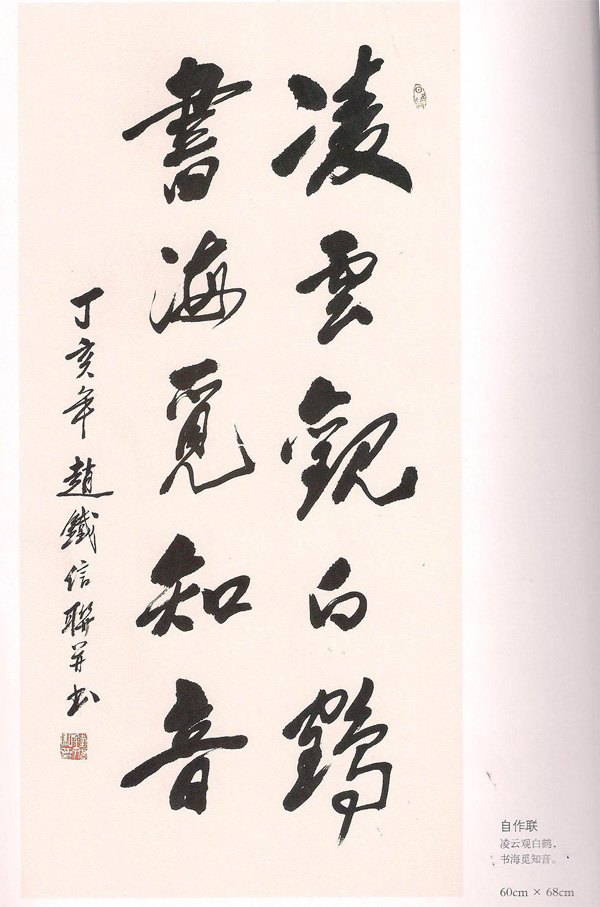 凌雲觀白鶴
書海覓知音
丁亥年趙鐵信聯並書
自作联
凌云观白鹤，
书海觅知音。
60cm × 68cm